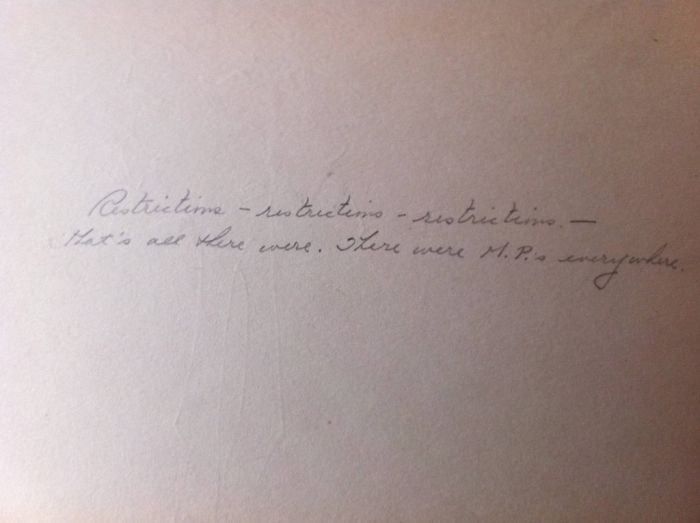 Restrictions - restrictions - restrictions. —
that's all there were. There were M.P.'s everywhere.